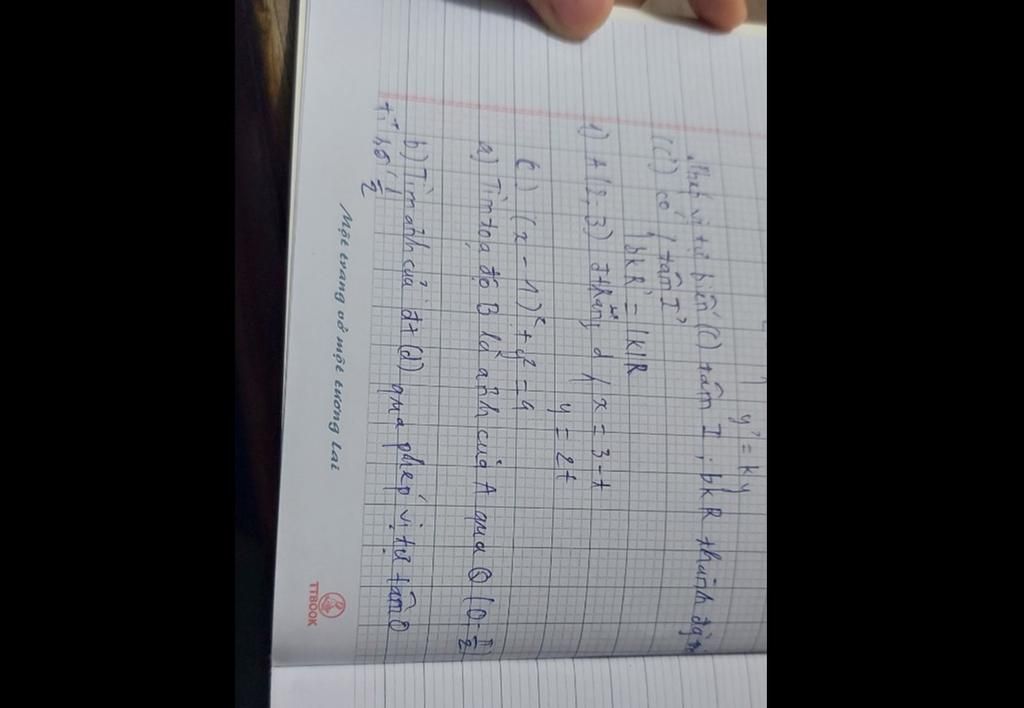 y' = ky
Phép vị tự biến (C) tâm I, bk R thành đg tr
(C') có { tâm I'
bk R' = |k|R
1) A(2,3) đthẳng d { x = 3-t
y = 2t
(C) (x-1)² + y² = 4
a) Tìm tọa độ B là ảnh của A qua Q (O-π/2)
b) Tìm ảnh của đt (d) qua phép vị tự tâm O
tỉ số 1/2
Một trang vở một tương lai
TTBOOK